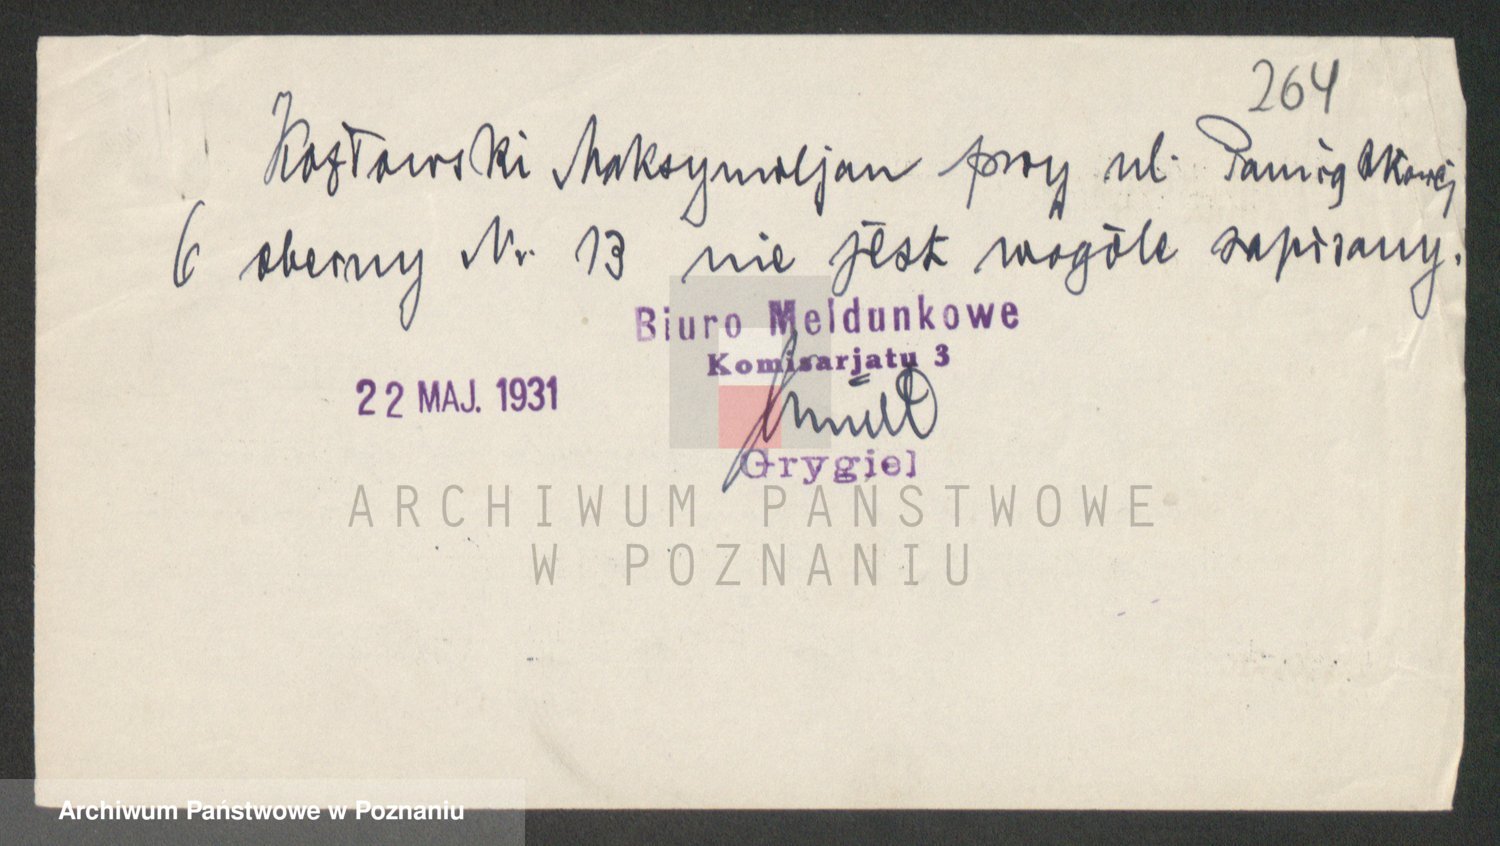 264
Kozłowski Maksymiljan przy ul. Pamiątkowej
6 obecny Nr. 13 nie jest wogóle zapisany.
Biuro Meldunkowe
Komisarjatu 3
22 MAJ. 1931
Grygiel
ARCHIWUM PAŃSTWOWE
W POZNANIU
Archiwum Państwowe w Poznaniu